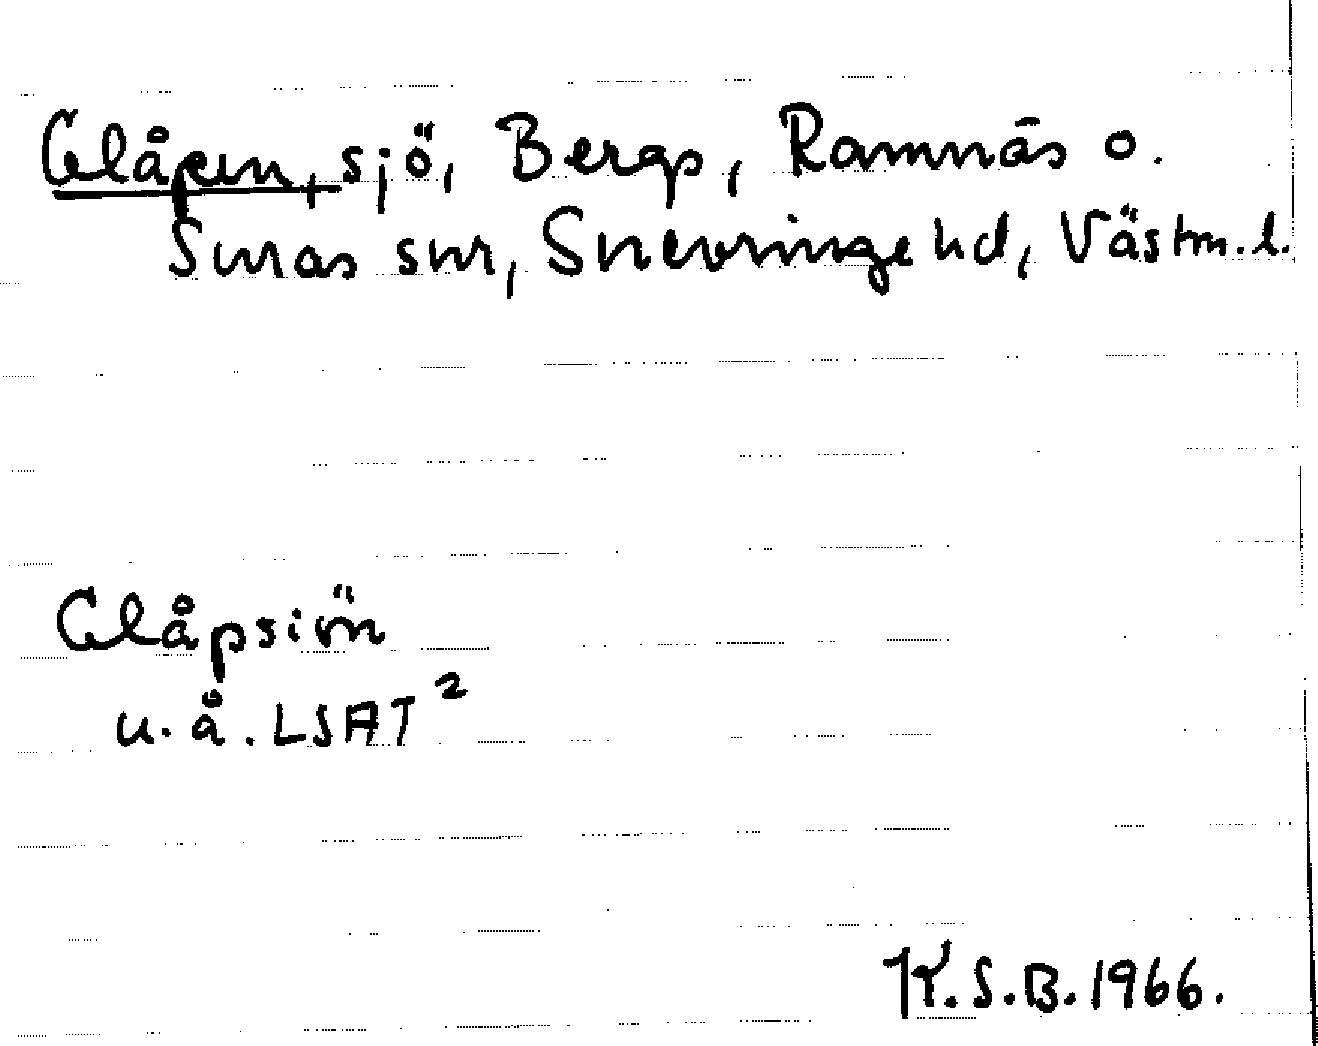 Glåpen, sjö, Bergs, Ramnäs o.
Suras snr, Snevringe hd, Västm. l.
Glåpsiön
u. å. LSAT²
K.S.B. 1966.